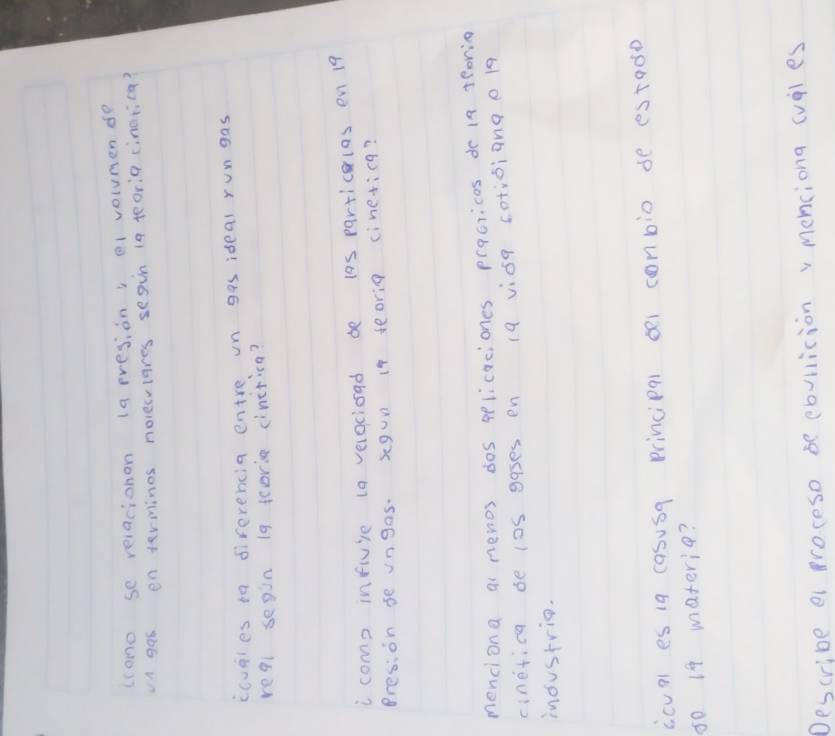 ¿como se relacionan la presión y el volumen de
un gas en terminos moleculares según la teoria cinetica?
¿cuales la diferencia entre un gas ideal y un gas
real según la teoria cinetica?
¿como influye la velocidad de las particulas en la
Presión de un gas. segun la teoria cinetica?
Menciona al menos dos aplicaciones practicos de la teoria
cinética de los gases en la vida cotidiana o la
industria.
¿cual es la casusa principal del cambio de estado
de la materia?
Describe el proceso de ebullición y menciona cuál es